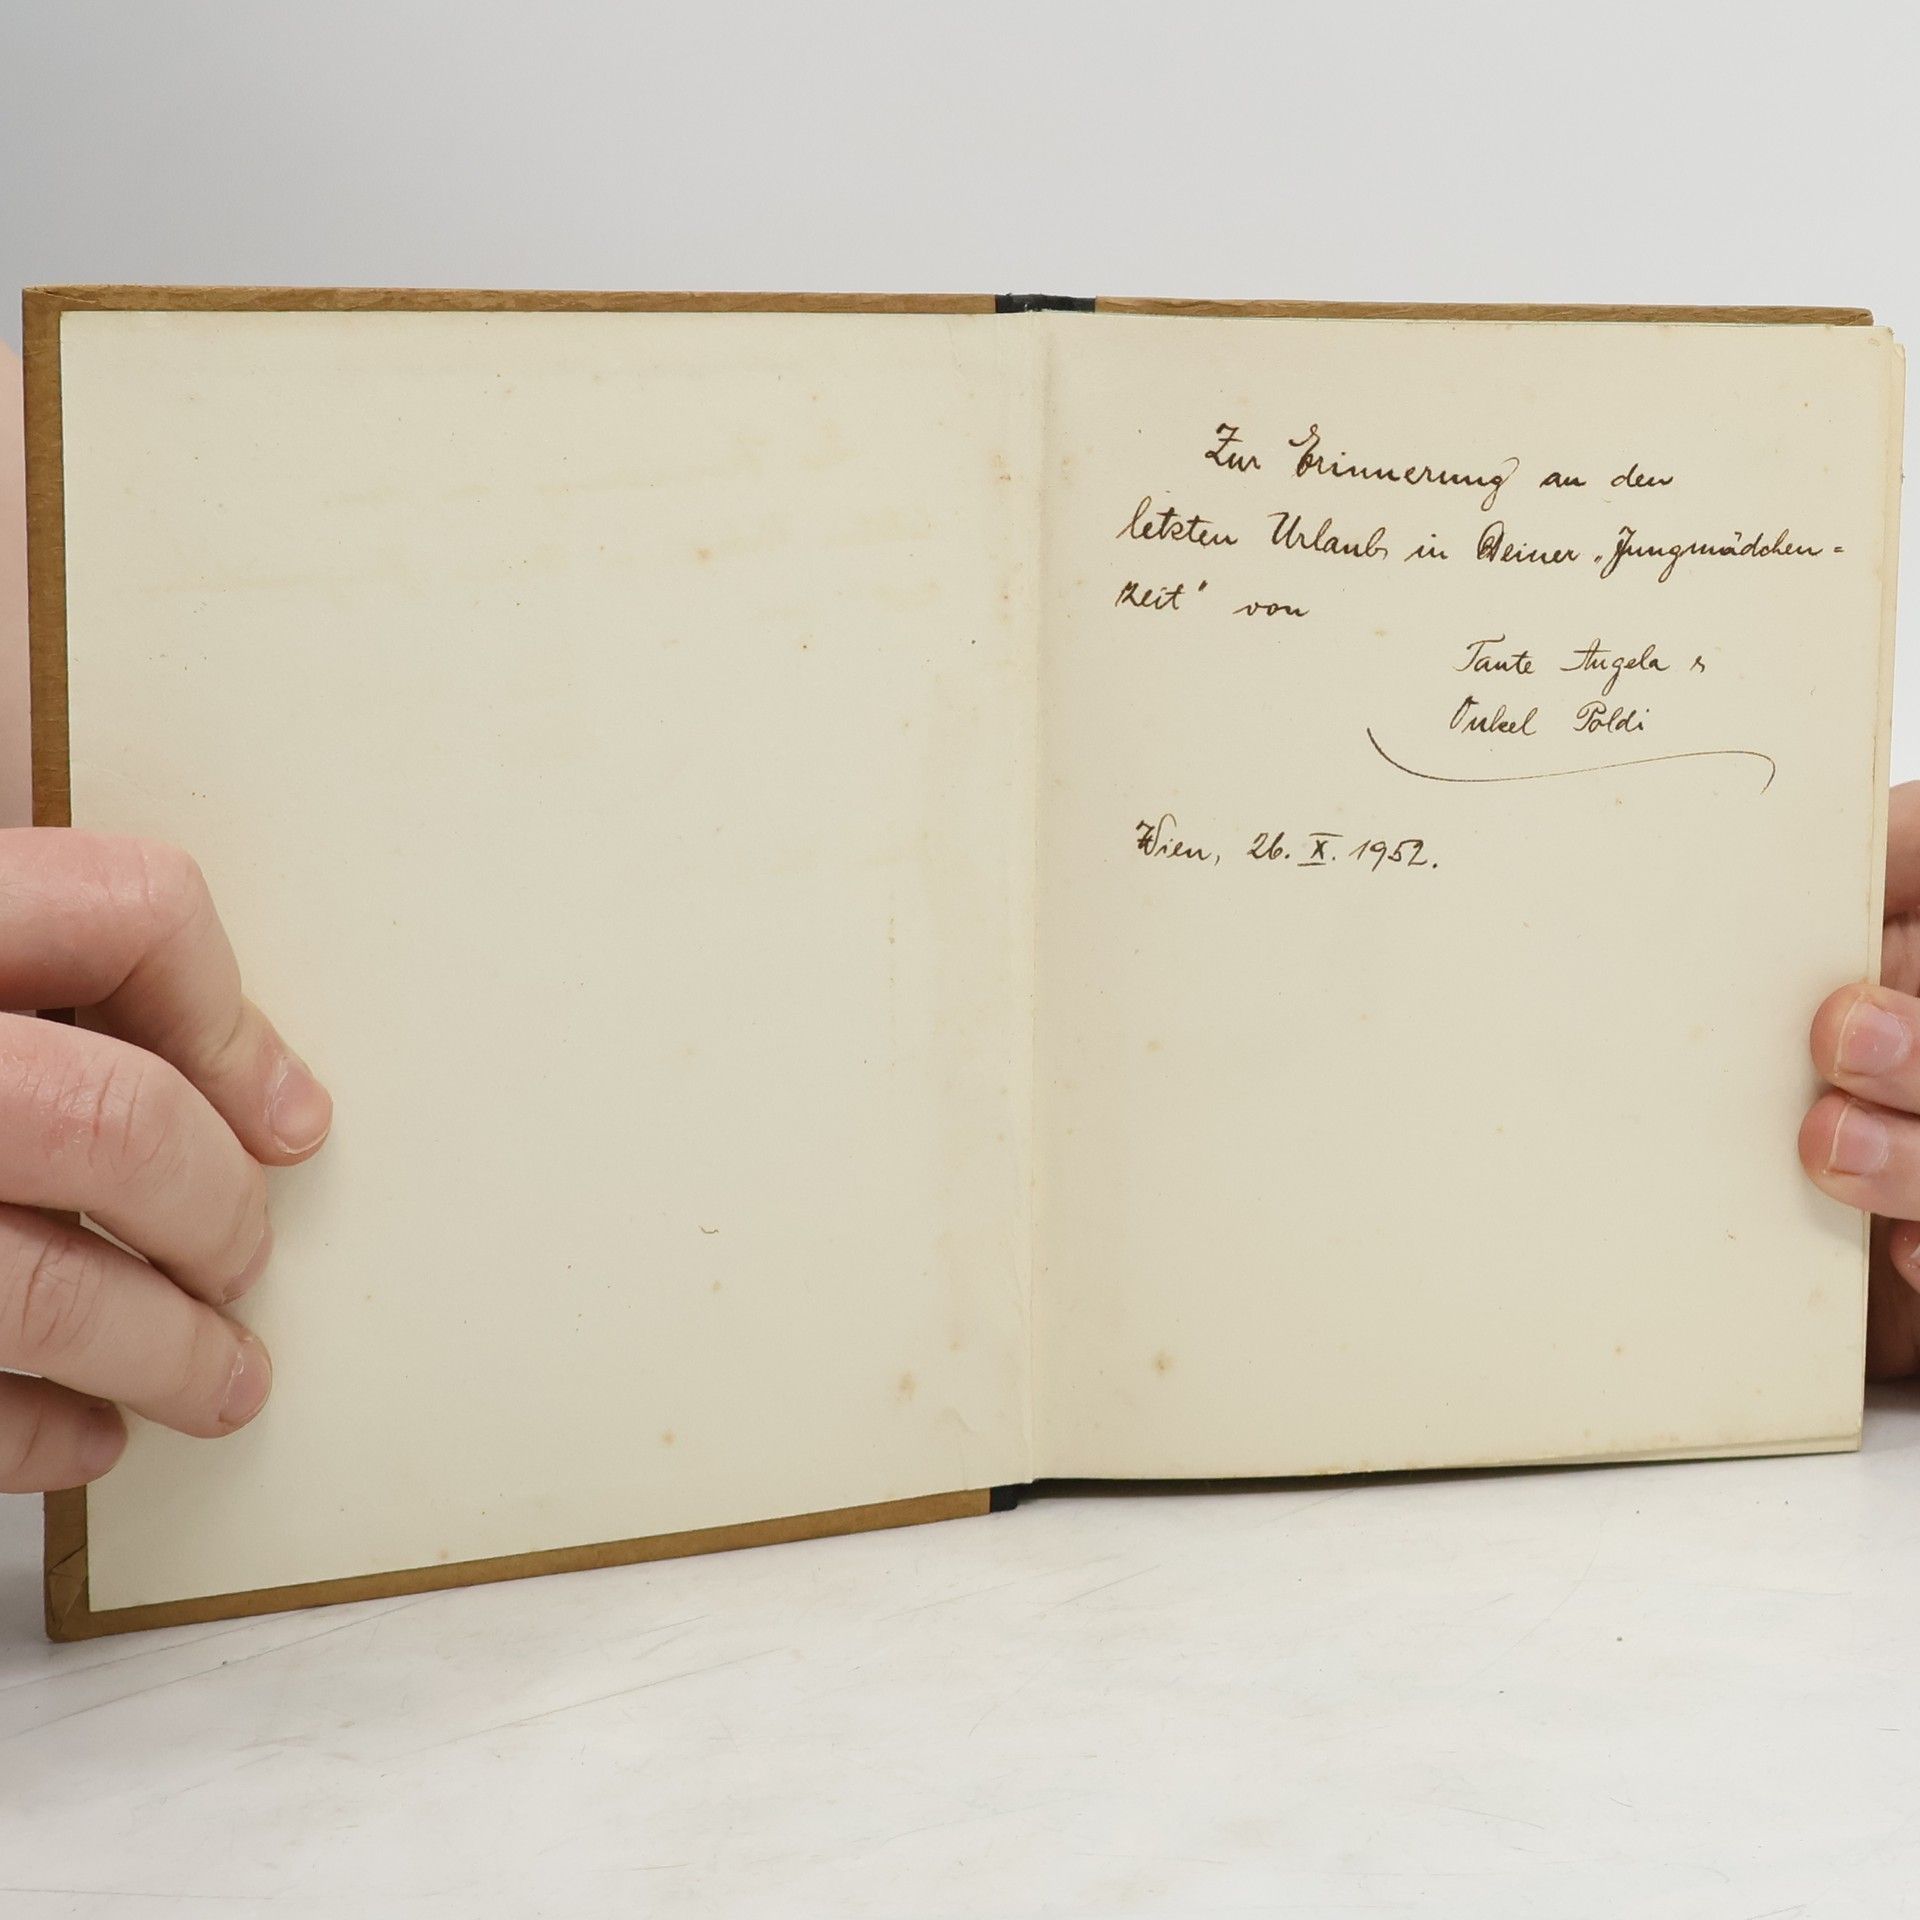 Zur Erinnerung an den
letzten Urlaub in Deiner „Jungmädchen=
zeit" von
Tante Angela &
Onkel Poldi
Wien, 26. X. 1952.